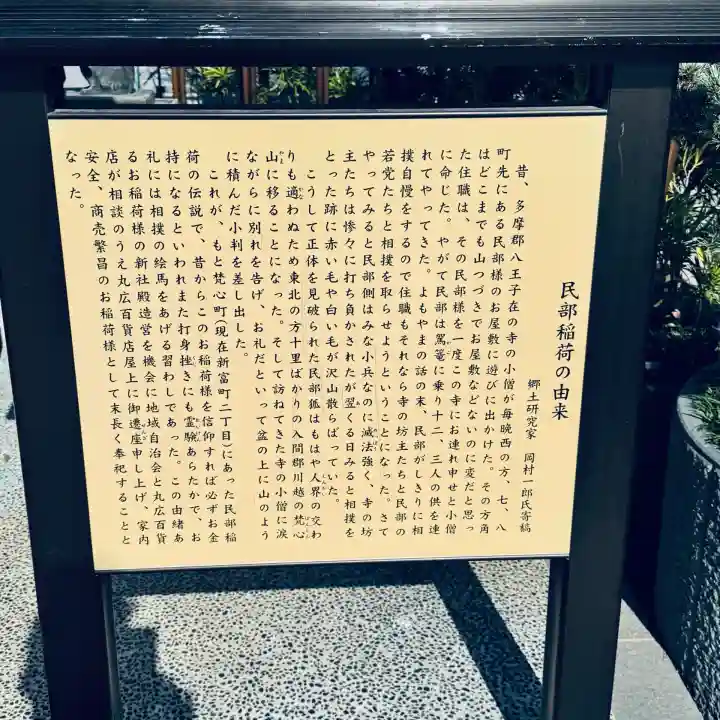 民部稲荷の由来
郷土研究家　岡村一郎氏寄稿
昔、多摩郡八王子在の寺の小僧が毎晩西の方、七、八
町先にある民部様のお屋敷に遊びに出かけた。その方角
はどこまでも山つづきでお屋敷などないのに変だと思っ
た住職は、その民部様を一度この寺にお連れ申せと小僧
に命じた。やがて民部は駕篭に乗り十二、三人の供を連
れてやってきた。よもやまの話の末、民部がしきりに相
撲自慢をするので住職もそれなら寺の坊主たちと民部の
若党たちと相撲を取らせようということになった。さて
やってみると民部側はみな小兵なのに滅法強く、寺の坊
主たちは惨々に打ち負かされたが翌くる日みると相撲を
とった跡に赤い毛や白い毛が沢山散らばっていた。
こうして正体を見破られた民部狐はもはや人界の交わ
りも適わぬため東北の方十里ばかりの入間郡川越の梵心
山に移ることになった。そして訪ねてきた寺の小僧に涙
ながらに別れを告げ、お札だといって盆の上に山のよう
に積んだ小判を差し出した。
これが、もと梵心町（現在新富町二丁目）にあった民部稲
荷の伝説で、昔からこのお稲荷様を信仰すれば必ずお金
持になるといわれまた打身挫きにも霊験あらたかで、お
礼には相撲の絵馬をあげる習わしであった。この由緒あ
るお稲荷様の新社殿造営を機会に地域自治会と丸広百貨
店が相談のうえ丸広百貨店屋上に御遷座申し上げ、家内
安全、商売繁昌のお稲荷様として末長く奉祀することと
なった。